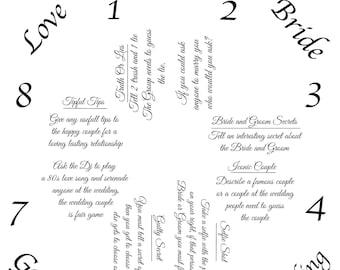 Love
1
2
Bride
8
3
7
4
Truth Or Lies
Tell 2 trush and 1 lie
The Group needs to guess
the lie.
If you could ask
anyone to marry you
who would you ask?
Tipful Tips
Give any usefull tips to
the happy couple for a
loving lasting relationship
Ask the Dj to play
a 80s love song and serenade
anyone at the wedding,
the wedding couple
is fair game
Bride and Groom Secrets
Tell an interesting secret about
the Bride and Groom
Iconic Couple
Describe a famous couple
or a couple at the wedding
people need to guess
the couple
Guilty Secret
You must tell a secret
then you get to choose
Selfie Shot
Take a selfie with the
on your right, if that person
Bride or Groom you must